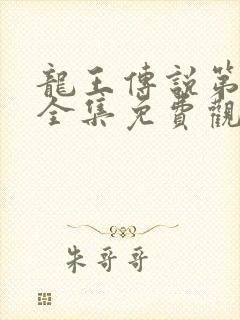 龍王傳說第
全集免費觀
朱哥哥